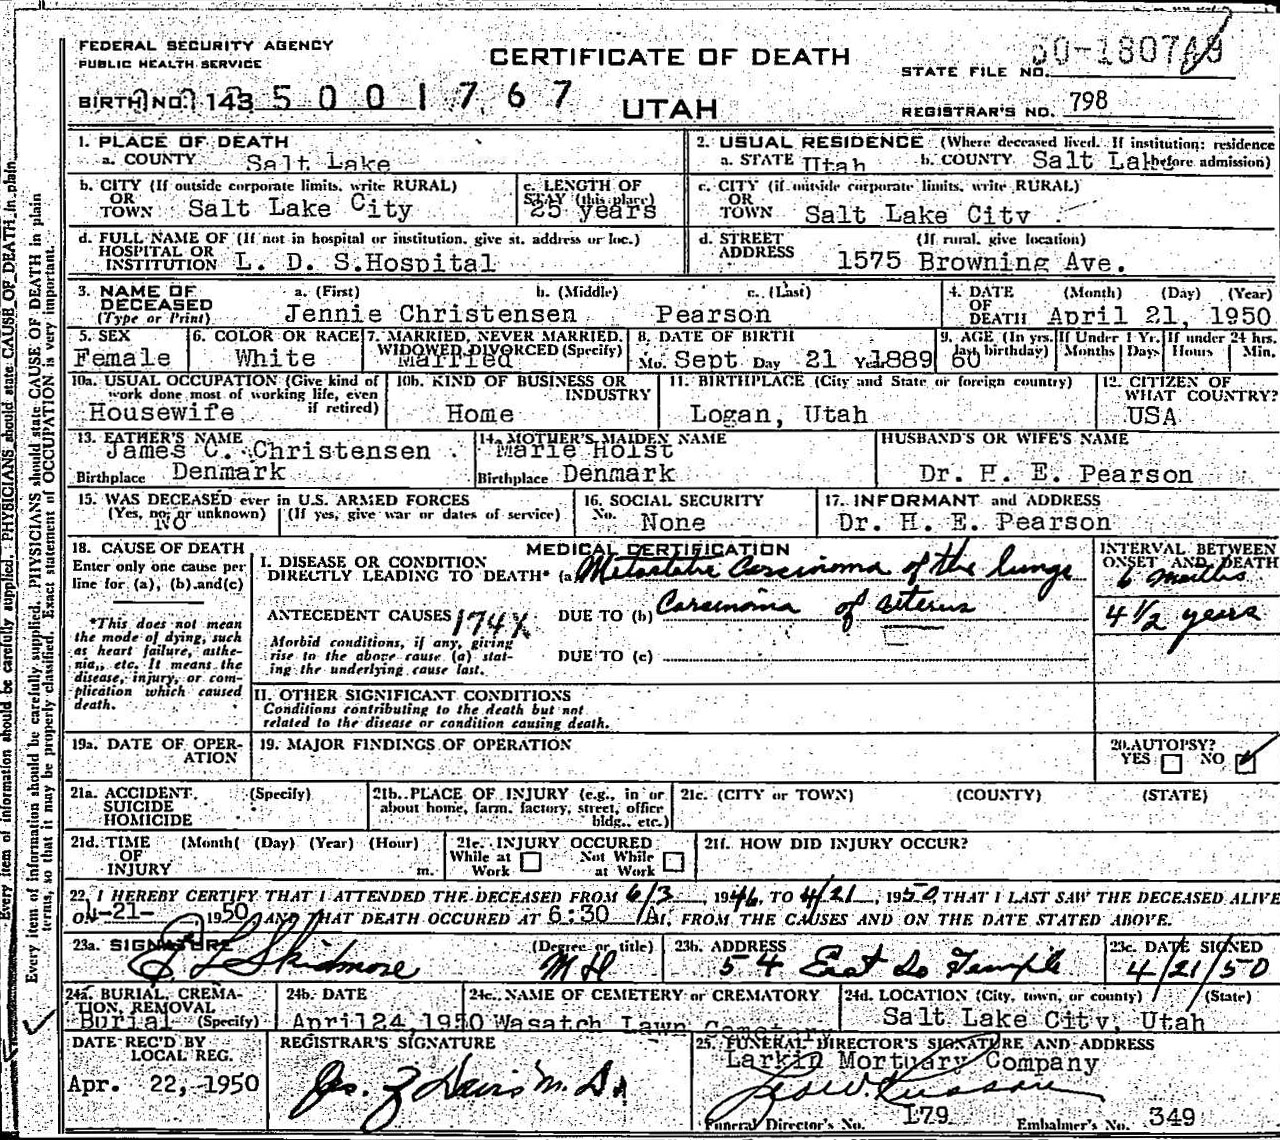 FEDERAL SECURITY AGENCY
PUBLIC HEALTH SERVICE
CERTIFICATE OF DEATH
STATE FILE NO.
BIRTH NO. 143 5001767
UTAH
REGISTRAR'S NO. 798
1. PLACE OF DEATH
a. COUNTY Salt Lake
2. USUAL RESIDENCE (Where deceased lived. If institution: residence before admission)
a. STATE Utah b. COUNTY Salt Lake
b. CITY (If outside corporate limits, write RURAL)
OR
TOWN Salt Lake City
c. LENGTH OF
STAY (this place)
25 years
c. CITY (if outside corporate limits, write RURAL)
OR
TOWN Salt Lake City
d. FULL NAME OF (If not in hospital or institution, give st. address or loc.)
HOSPITAL OR
INSTITUTION L. D. S.Hospital
d. STREET (If rural, give location)
ADDRESS 1575 Browning Ave.
3. NAME OF a. (First) b. (Middle) c. (Last)
DECEASED
(Type or Print) Jennie Christensen Pearson
4. DATE (Month) (Day) (Year)
OF
DEATH April 21, 1950
5. SEX
Female
6. COLOR OR RACE
White
7. MARRIED, NEVER MARRIED,
WIDOWED, DIVORCED (Specify)
Married
8. DATE OF BIRTH
Mo. Sept. Day 21 Yr. 1889
9. AGE (In yrs. last birthday) 60
If Under 1 Yr. Months Days
If under 24 hrs. Hours Min.
10a. USUAL OCCUPATION (Give kind of
work done most of working life, even
if retired)
Housewife
10b. KIND OF BUSINESS OR
INDUSTRY
Home
11. BIRTHPLACE (City and State or foreign country)
Logan, Utah
12. CITIZEN OF
WHAT COUNTRY?
USA
13. FATHER'S NAME
James C. Christensen
Birthplace Denmark
14a MOTHER'S MAIDEN NAME
Marie Holst
Birthplace Denmark
HUSBAND'S OR WIFE'S NAME
Dr. H. E. Pearson
15. WAS DECEASED ever in U.S. ARMED FORCES
(Yes, no, or unknown) (If yes, give war or dates of service)
No
16. SOCIAL SECURITY
No. None
17. INFORMANT and ADDRESS
Dr. H. E. Pearson
18. CAUSE OF DEATH
Enter only one cause per
line for (a), (b) and (c)
*This does not mean
the mode of dying, such
as heart failure, asthe-
nia, etc. It means the
disease, injury, or com-
plication which caused
death.
MEDICAL CERTIFICATION
I. DISEASE OR CONDITION
DIRECTLY LEADING TO DEATH* (a) Metastatic Carcinoma of the lungs
ANTECEDENT CAUSES 174X DUE TO (b) Carcinoma of uterus
Morbid conditions, if any, giving
rise to the above cause (a) stat-
ing the underlying cause last.
DUE TO (c)
INTERVAL BETWEEN
ONSET AND DEATH
6 months
4 1/2 years
II. OTHER SIGNIFICANT CONDITIONS
Conditions contributing to the death but not
related to the disease or condition causing death.
19a. DATE OF OPER-
ATION
19. MAJOR FINDINGS OF OPERATION
20. AUTOPSY?
YES NO ✓
21a. ACCIDENT (Specify)
SUICIDE
HOMICIDE
21b. PLACE OF INJURY (e.g., in or
about home, farm, factory, street, office
bldg., etc.)
21c. (CITY or TOWN) (COUNTY) (STATE)
21d. TIME (Month( (Day) (Year) (Hour)
OF
INJURY m.
21e. INJURY OCCURED
While at Work Not While at Work
21f. HOW DID INJURY OCCUR?
22. I HEREBY CERTIFY THAT I ATTENDED THE DECEASED FROM 6/3, 1946, TO 4/21, 1950, THAT I LAST SAW THE DECEASED ALIVE
ON 4-21- 1950, AND THAT DEATH OCCURED AT 6:30 AM, FROM THE CAUSES AND ON THE DATE STATED ABOVE.
23a. SIGNATURE (Degree or title)
Skidmore
23b. ADDRESS
54 East So Temple
23c. DATE SIGNED
4/21/50
24a. BURIAL, CREMA-
TION, REMOVAL
Burial (Specify)
24b. DATE
April 24, 1950
24c. NAME OF CEMETERY or CREMATORY
Wasatch Lawn Cemetery
24d. LOCATION (City, town, or county) (State)
Salt Lake City, Utah
DATE REC'D BY
LOCAL REG.
Apr. 22, 1950
REGISTRAR'S SIGNATURE
25. FUNERAL DIRECTOR'S SIGNATURE AND ADDRESS
Larkin Mortuary Company
Funeral Director's No. 179 Embalmer's No. 349
Every item of information should be carefully supplied. PHYSICIANS should state CAUSE OF DEATH in plain
Every item of information should be carefully supplied. PHYSICIANS should state CAUSE OF DEATH in plain
terms, so that it may be properly classified. Exact statement of OCCUPATION is very important.